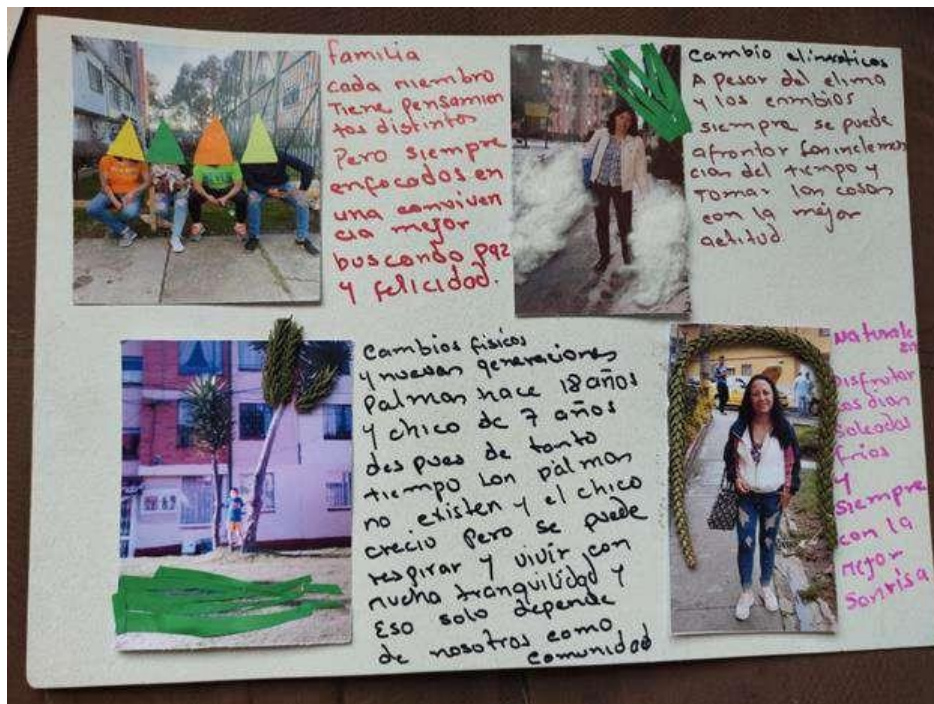 familia
cada miembro
Tiene pensamien
tos distintos
Pero siempre
enfocados en
una conviven
cia mejor
buscando paz
y felicidad.
Cambio climaticos
A pesar del clima
y los cambios
siempre se puede
afrontar las inclemen
cias del tiempo y
Tomar las cosas
con la mejor
actitud.
Cambios físicos
y nuevas generaciones
Palmas hace 18 años
y chico de 7 años
des pues de tanto
tiempo las palmas
no existen y el chico
crecio Pero se puede
respirar y vivir con
mucha tranquilidad y
Eso solo depende
de nosotros como
Comunidad
Naturale
za
Disfrutar
los dias
Soleados
frios
y
siempre
con la
mejor
Sonrisa